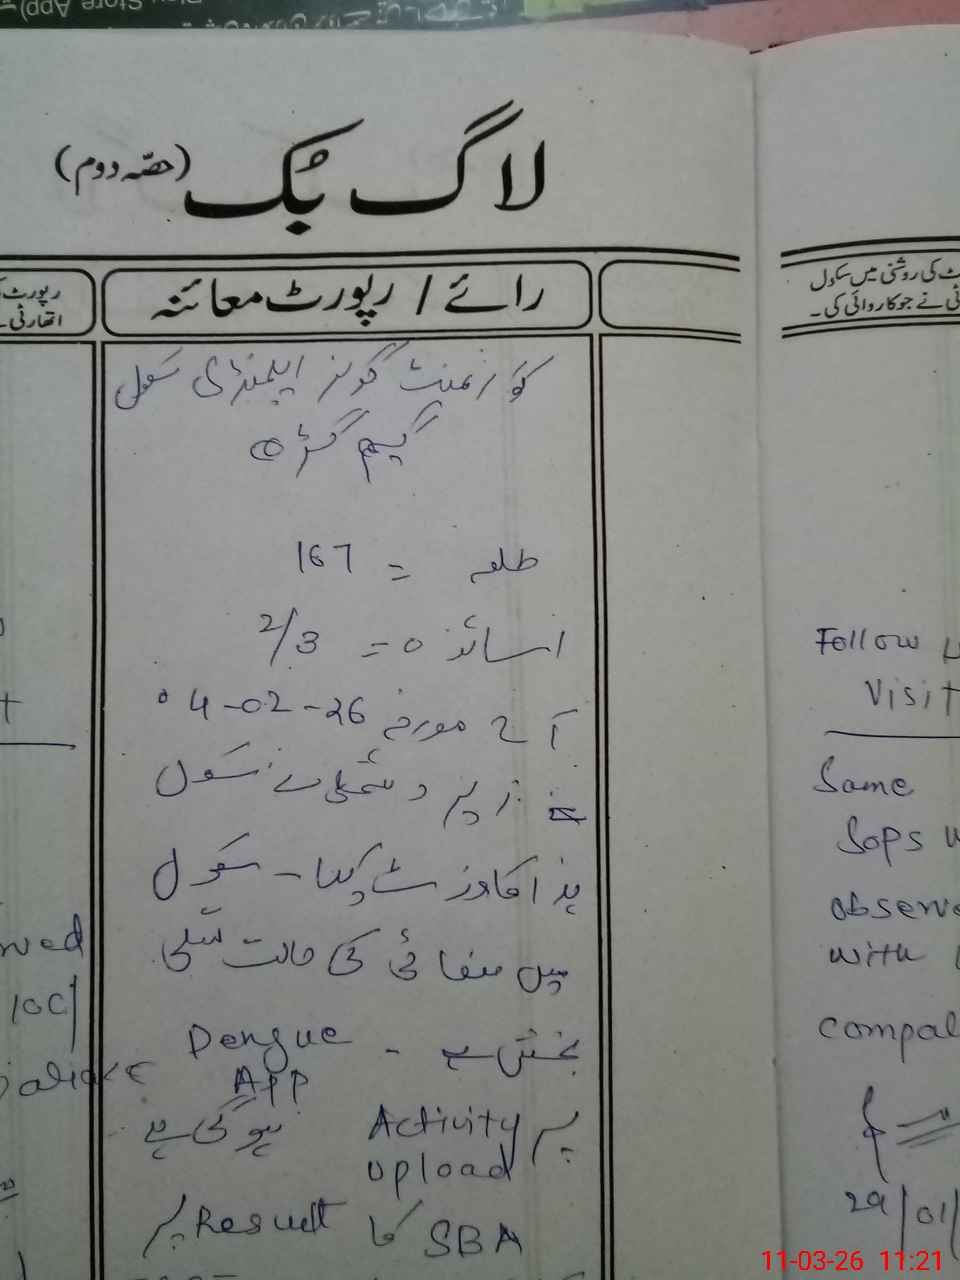 لاگ بُک (حصّہ دوم)
رائے / رپورٹ معائنہ
رپورٹ
اتھارٹی
کی روشنی میں سکول
نے جو کاروائی کی۔
گورنمنٹ گرلز ایلمنٹری سکول
طلبہ = 167
اساتذہ = 2/3
آج مورخہ 26-02-04
سکول
ہذا کا وزٹ کیا۔ سکول
میں صفائی کی حالت تسلی
بخش ہے - Dengue
APP
پر Activity ہو گئی ہے
upload
SBA کا Result پر
Follow
Visit
Same
Sops
observe
with
compal
29/01/
11-03-26 11:21